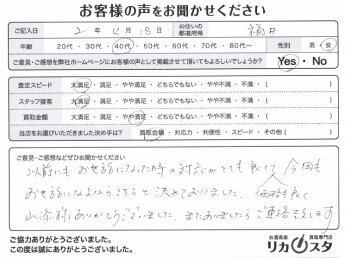 お客様の声をお聞かせください
ご記入日 2年 12月 18日 お住いの都道府県 福井
年齢 20代・30代・40代・50代・60代・70代・80代〜 性別 男・女
ご意見・ご感想を弊社ホームページにお客様の声として掲載させて頂いてもよろしいでしょうか? Yes・No
査定スピード 大満足・満足・やや満足・どちらでもない・やや不満・不満・( )
スタッフ接客 大満足・満足・やや満足・どちらでもない・やや不満・不満・( )
買取金額 大満足・満足・やや満足・どちらでもない・やや不満・不満・( )
当店をお選びいただきました決め手は? 買取金額・対応力・利便性・スピード・その他( )
ご意見・ご感想などぜひお聞かせください
以前にもお世話になった時の対応がとても良くて、今回も
お世話になるならこちらと決めておりました。価格も良く
ありがとうございました。またありましたらご連絡致します
ご協力ありがとうございました。
この度は誠にありがとうございました。
お酒高価買取専門店
リカスタ